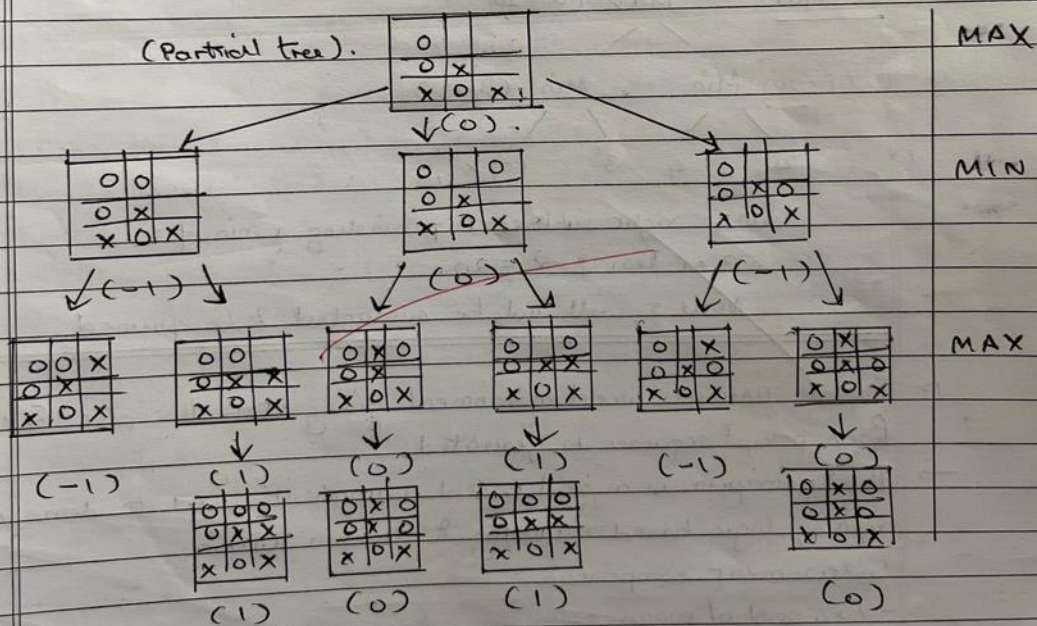 (Partial tree). MAX
O
O X
X O X
(0).
MIN
O O
O X
X O X
O O
O X
X O X
O
X O
X O X
(-1) (0) (-1)
MAX
O O X
O X
X O X
O O
O X X
X O X
O X O
O X
X O X
O O
O X X
X O X
O X
O X O
X O X
O X
O X O
X O X
(-1) (1) (0) (1) (-1) (0)
O O O
O X X
X O X
O X O
O X O
X O X
O O O
O X X
X O X
O X O
O X O
X O X
(1) (0) (1) (0)